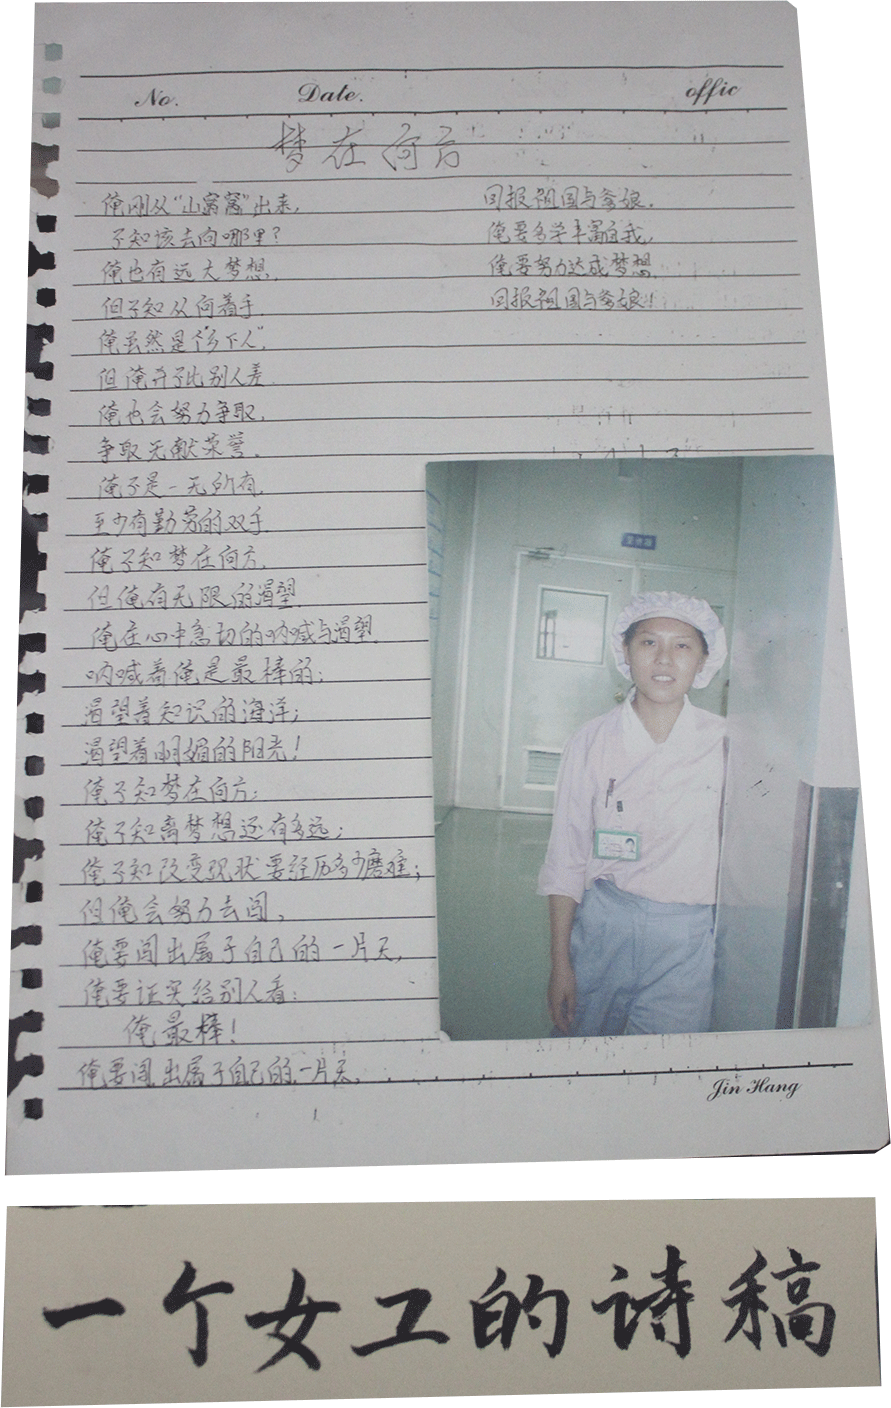 No.
Date.
offic
梦在何方
俺刚从“山窝窝”出来,
不知该去向哪里?
俺也有远大梦想,
但不知从何着手.
俺虽然是个“乡下人”,
但俺并不比别人差.
俺也会努力争取,
争取无献荣誉.
俺不是一无所有,
至少有勤劳的双手.
俺不知梦在何方,
但俺有无限的渴望.
俺在心中急切的呐喊与渴望.
呐喊着俺是最棒的;
渴望着知识的海洋;
渴望着明媚的阳光!
俺不知梦在何方;
俺不知离梦想还有多远;
俺不知改变现状要经历多少磨难;
但俺会努力去闯,
俺要闯出属于自己的一片天,
俺要证实给别人看:
俺最棒!
俺要闯出属于自己的一片天,
回报祖国与爹娘.
俺要多学丰富自我,
俺要努力达成梦想,
回报祖国与爹娘!!
Jin Hang
一个女工的诗稿